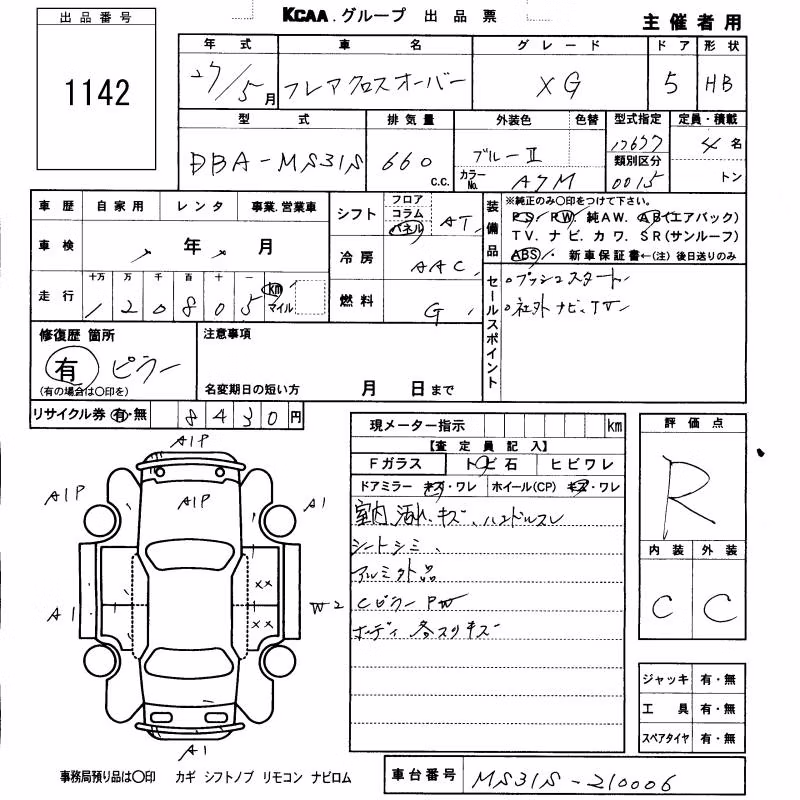 出品番号
1142
KCAA.グループ 出品票
主催者用
年式 車名 グレード ドア 形状
27/5月 フレアクロスオーバー XG 5 HB
型式 排気量 外装色 色替 型式指定 定員・積載
DBA-MS31S 660 c.c. ブルーII 17677 4名
カラーNo. A7M 類別区分 0015 トン
車歴 自家用 レンタ 事業.営業車
シフト フロア コラム パネル AT
装備品 ※純正のみ○印をつけて下さい。
PS. PW. 純AW. AB(エアバック)
TV. ナビ. カワ. SR(サンルーフ)
ABS. 新車保証書←(注)後日送りのみ
車検 年 月
冷房 AAC
走行 十万 万 千 百 十 一
120805 km マイル
燃料 G
セールスポイント
○プッシュスタート
○社外ナビ、TV
修復歴 箇所
有 ピラー
(有の場合は○印を)
注意事項
名変期日の短い方 月 日まで
リサイクル券 有・無 8430円
現メーター指示 km
【査定員記入】
Fガラス トビ石 ヒビワレ
ドアミラー キズ・ワレ ホイール(CP) キズ・ワレ
室内 汚れ、キズ、ハンドルスレ
シートシミ、
アルミ外品
Cピラー PW
ボディ 各スリキズ
評価点
R
内装 外装
C C
ジャッキ 有・無
工具 有・無
スペアタイヤ 有・無
A1P
A1P A1P A1
XX
A1 W2
XX
A1
事務局預り品は○印 カギ シフトノブ リモコン ナビロム
車台番号 MS31S-210006